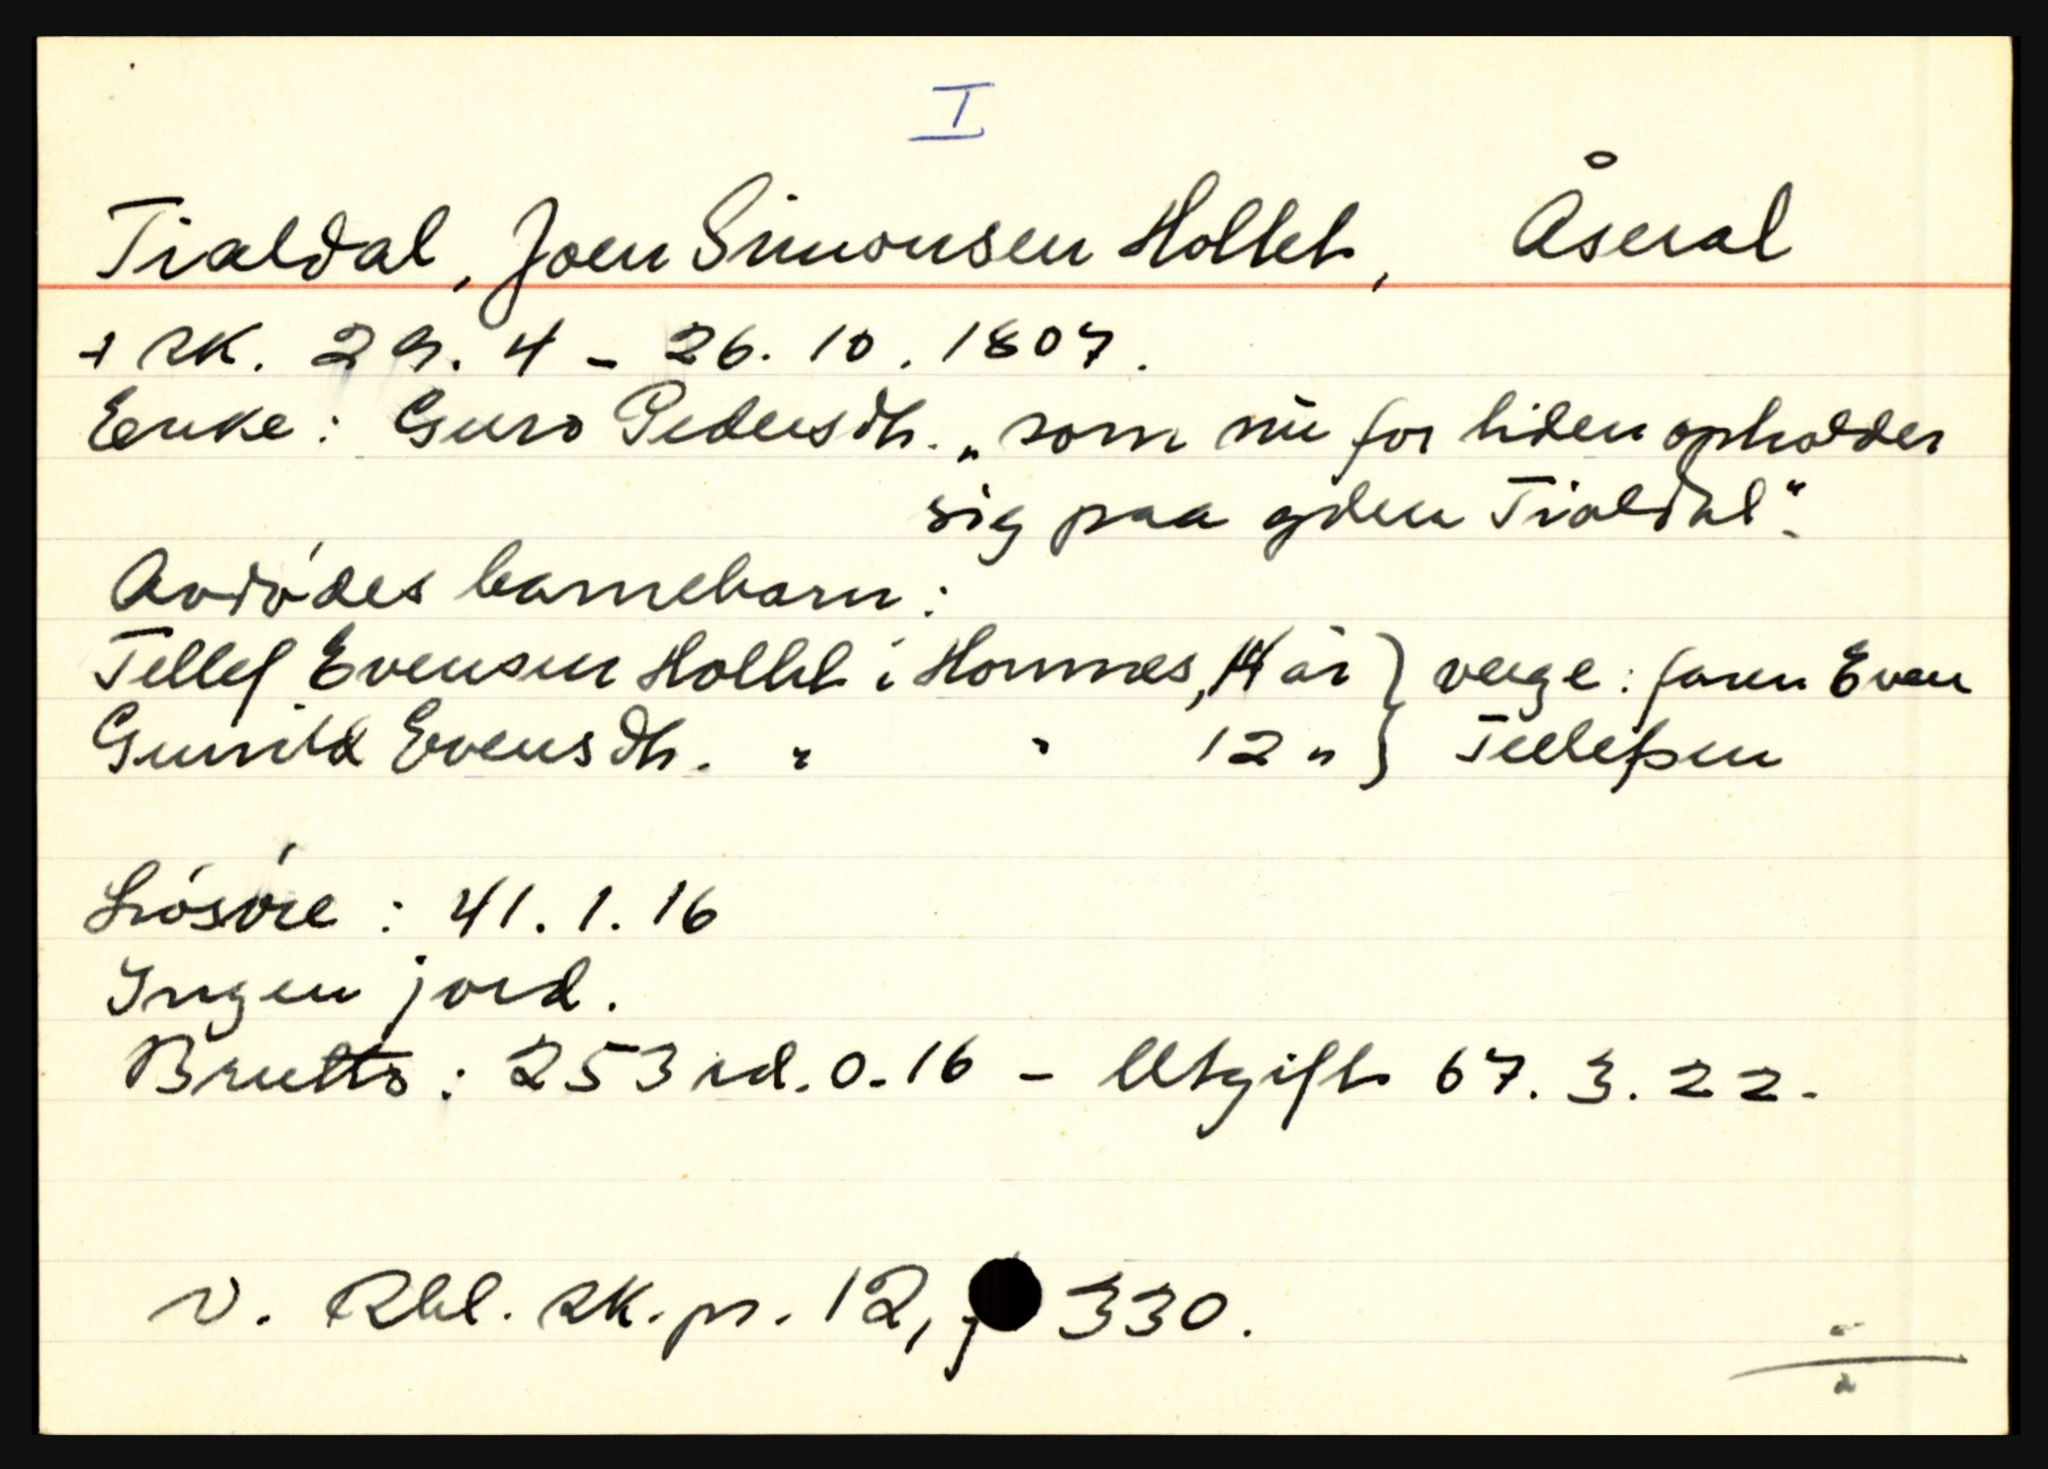 I
Tialdal, Joen Simonsen Hollet, Åseral
+ SK. 29. 4 - 26. 10. 1807.
Enke: Guro Pedersdh. „som nu for tiden opholder
sig paa gden Tialdal“.
Avdødes barnebarn:
Tellef Evensen Hollet i Homnes, 14 år } verge: faren Even
Gunild Evensdh. " " 12 " } Tellefsen
Løsøre: 41. 1. 16
Ingen jord.
Brutto: 253 rd. 0. 16 - Utgift 67. 3. 22.
V. Rbl. SK. pr. 12, 330.